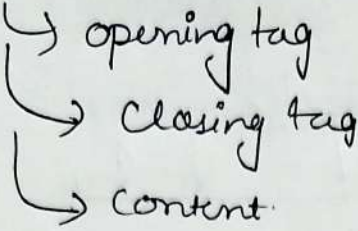 ↳ opening tag
↳ Closing tag
↳ Content.